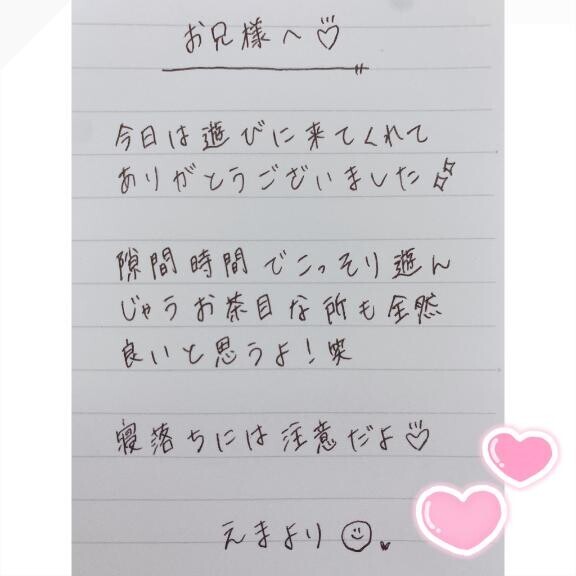 お兄様へ♡
今日は遊びに来てくれて
ありがとうございました
隙間時間でこっそり遊ん
じゃうお茶目な所も全然
良いと思うよ！笑
寝落ちには注意だよ♡
えまより